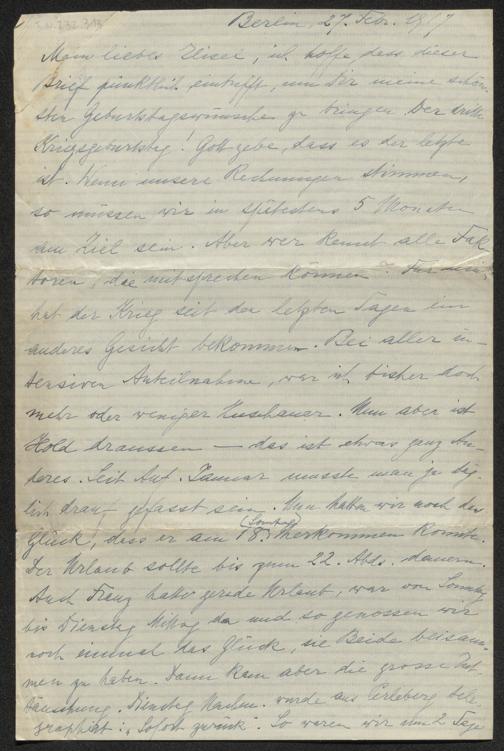 Berlin, 27. Febr. 1917
Mein liebes Lisel, ich hoffe dass dieser
Brief pünktlich eintrifft, um Dir meine schön-
sten Geburtstagswünsche zu bringen. Der dritte
Kriegsgeburtstag! Gott gebe, dass es der letzte
ist. Wenn unsere Rechnungen stimmen,
so müssen wir in spätestens 5 Monaten
am Ziel sein. Aber wer kennt alle Fak
toren, die mitsprechen können? Für uns
hat der Krieg seit den letzten Tagen ein
anderes Gesicht bekommen. Bei aller in-
tensiven Anteilnahme, war ich bisher doch
mehr oder weniger Zuschauer. Nun aber ist
Hold draussen — das ist etwas ganz An-
deres. Seit Anf. Januar musste man ja täg-
lich drauf gefasst sein. Nun hatten wir noch das
Glück, dass er am 18. (Sonntag) herkommen konnte.
Der Urlaub sollte bis zum 22. Abds. dauern.
Auch Franz hatte gerade Urlaub, war von Sonntag
bis Dienstag Mittag da und so genossen wir
noch einmal das Glück, sie Beide beisam-
men zu haben. Dann kam aber die grosse Ent-
täuschung. Dienstag Nachm. wurde aus Perleberg tele-
graphirt: "Sofort zurück". So waren wir um 2 Tage